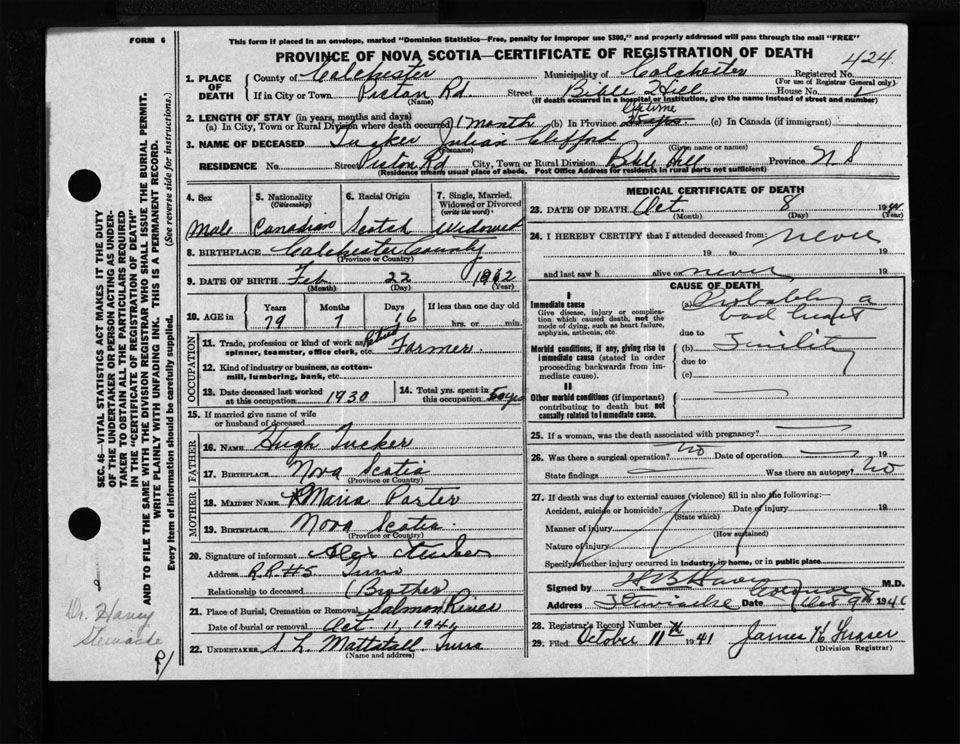 FORM 6
This form if placed in an envelope, marked "Dominion Statistics—Free, penalty for improper use $300," and properly addressed will pass through the mail "FREE"
PROVINCE OF NOVA SCOTIA—CERTIFICATE OF REGISTRATION OF DEATH
424
1. PLACE OF DEATH County of Colchester Municipality of Colchester Registered No.
(For use of Registrar General only)
If in City or Town Pictou Rd. Street Bible Hill House No.
(Name) (If death occurred in a hospital or institution, give the name instead of street and number)
2. LENGTH OF STAY (in years, months and days) Lifetime
(a) In City, Town or Rural Division where death occurred 1 Month (b) In Province (c) In Canada (if immigrant)
3. NAME OF DECEASED Tucker Julian Clifford
(Surname) (Given name or names)
RESIDENCE No. Street Pictou Rd City, Town or Rural Division Bible Hill Province N S
(Residence means usual place of abode. Post Office Address for residents in rural parts not sufficient)
4. Sex 5. Nationality (Citizenship) 6. Racial Origin 7. Single, Married, Widowed or Divorced (write the word)
Male Canadian Scotch Widowed
8. BIRTHPLACE Colchester County
(Province or Country)
9. DATE OF BIRTH Feb 22 1862
(Month) (Day) (Year)
10. AGE in Years Months Days If less than one day old
79 7 16 hrs. or min.
OCCUPATION
11. Trade, profession or kind of work as spinner, teamster, office clerk, etc. Retired Farmer.
12. Kind of industry or business, as cotton-mill, lumbering, bank, etc.
13. Date deceased last worked at this occupation 1930 14. Total yrs. spent in this occupation 50 yrs
15. If married give name of wife or husband of deceased
FATHER
16. NAME Hugh Tucker
17. BIRTHPLACE Nova Scotia
(Province or Country)
MOTHER
18. MAIDEN NAME Maria Porter
19. BIRTHPLACE Nova Scotia.
(Province or Country)
20. Signature of informant Alex Tucker
Address R.R #5 Truro
Relationship to deceased Brother
21. Place of Burial, Cremation or Removal Salmon River
Date of burial or removal Oct. 11, 1941
22. UNDERTAKER S L Mattatall Truro
(Name and address)
MEDICAL CERTIFICATE OF DEATH
23. DATE OF DEATH Oct. 8 1941
(Month) (Day) (Year)
24. I HEREBY CERTIFY that I attended deceased from: never
19 to 19
and last saw h alive on never 19
CAUSE OF DEATH
I
Immediate cause (a) Probably a bad heart
Give disease, injury or complication which caused death, not the mode of dying, such as heart failure, asphyxia, asthenia, etc.
due to
Morbid conditions, if any, giving rise to immediate cause (stated in order proceeding backwards from immediate cause).
(b) Sinility
due to
(c)
II
Other morbid conditions (if important) contributing to death but not causally related to immediate cause.
25. If a woman, was the death associated with pregnancy?
26. Was there a surgical operation? no Date of operation 19
State findings Was there an autopsy? no
27. If death was due to external causes (violence) fill in also the following:—
Accident, suicide or homicide? Date of injury 19
(State which)
Manner of injury
(How sustained)
Nature of injury
Specify whether injury occurred in Industry, in home, or in public place
Signed by M.D.
Address Stewiacke Date Oct 9th 194
28. Registrar's Record Number
29. Filed October 11th 1941 James H Fraser
(Division Registrar)
SEC. 46—VITAL STATISTICS ACT MAKES IT THE DUTY OF THE UNDERTAKER OR PERSON ACTING AS UNDERTAKER TO OBTAIN ALL THE PARTICULARS REQUIRED IN THE "CERTIFICATE OF REGISTRATION OF DEATH" AND TO FILE THE SAME WITH THE DIVISION REGISTRAR WHO SHALL ISSUE THE BURIAL PERMIT.
WRITE PLAINLY WITH UNFADING INK. THIS IS A PERMANENT RECORD.
Every item of information should be carefully supplied. (See reverse side for instructions.)
Dr. Havey
Stewiacke